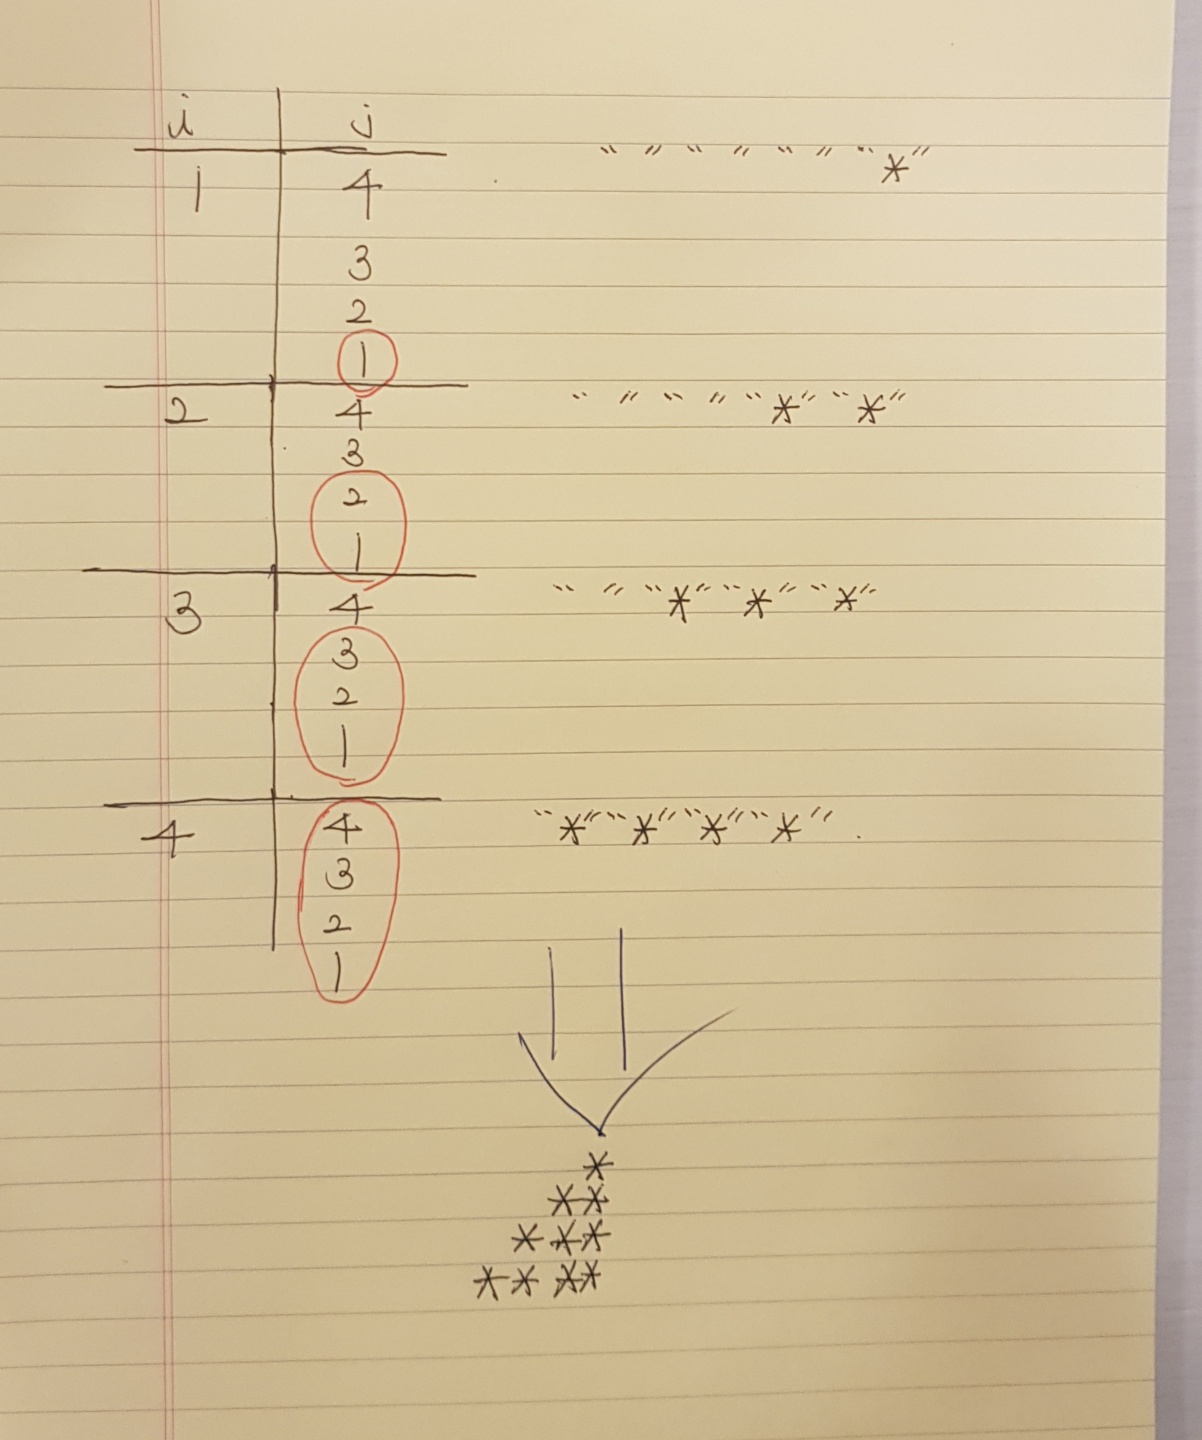 i j
1 4 “ ” “ ” “ ” “*”
3
2
1
2 4 “ ” “ ” “*” “*”
3
2
1
3 4 “ ” “*” “*” “*”
3
2
1
4 4 “*” “*” “*” “*”
3
2
1
*
**
***
****